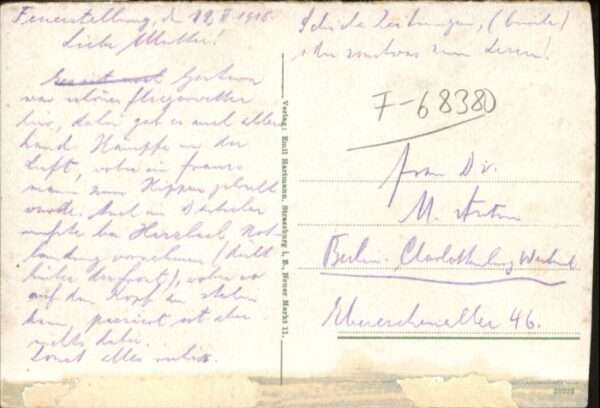 Feuerstellung, d. 19. II 1916.
Liebe Mutter!
Gestern
war schönes Fliegerwetter
hier, dabei gab es auch aller
hand Kämpfe in der
Luft, wobei ein franz
mann zum Kippen gebracht
wurde. Auch ein Deutscher
mußte bei Herzbach Not
landung vornehmen (dicht
hinter der Front), wobei er
auf den Kopf zu stehen
kam, passiert ist aber
nichts dabei.
Sonst alles ruhig.
Schicke Zeitungen, (bunte)
oder sonstwas zum Lesen!
F-68380
Verlag: Emil Hartmann, Strassburg i. E., Neuer Markt 11.
Frau Dir.
M.
Berlin-Charlottenburg Westend
Ebereschenallee 46.